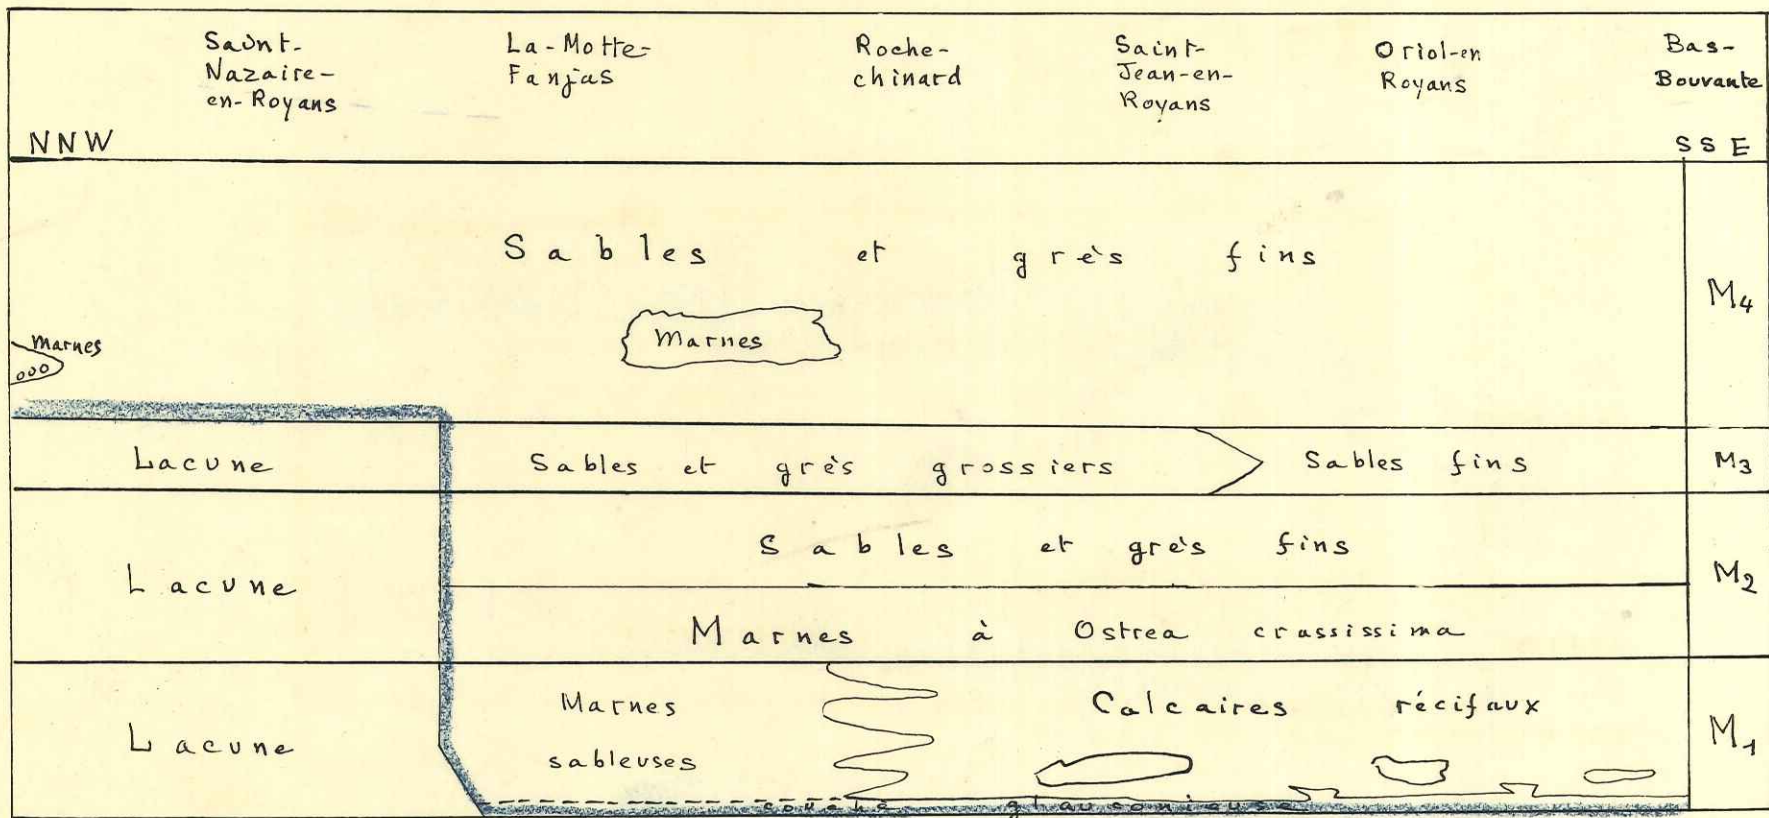 Saint-
Nazaire-
en-Royans
La-Motte-
Fanjas
Roche-
chinard
Saint-
Jean-en-
Royans
Oriol-en
Royans
Bas-
Bouvante
NNW
SSE
Sables et grès fins
M4
Marnes
Marnes
ooo
Lacune
Sables et grès grossiers
Sables fins
M3
Sables et grès fins
Lacune
M2
Marnes à Ostrea crassissima
Marnes
sableuses
Calcaires récifaux
Lacune
M1
couche glauconieuse